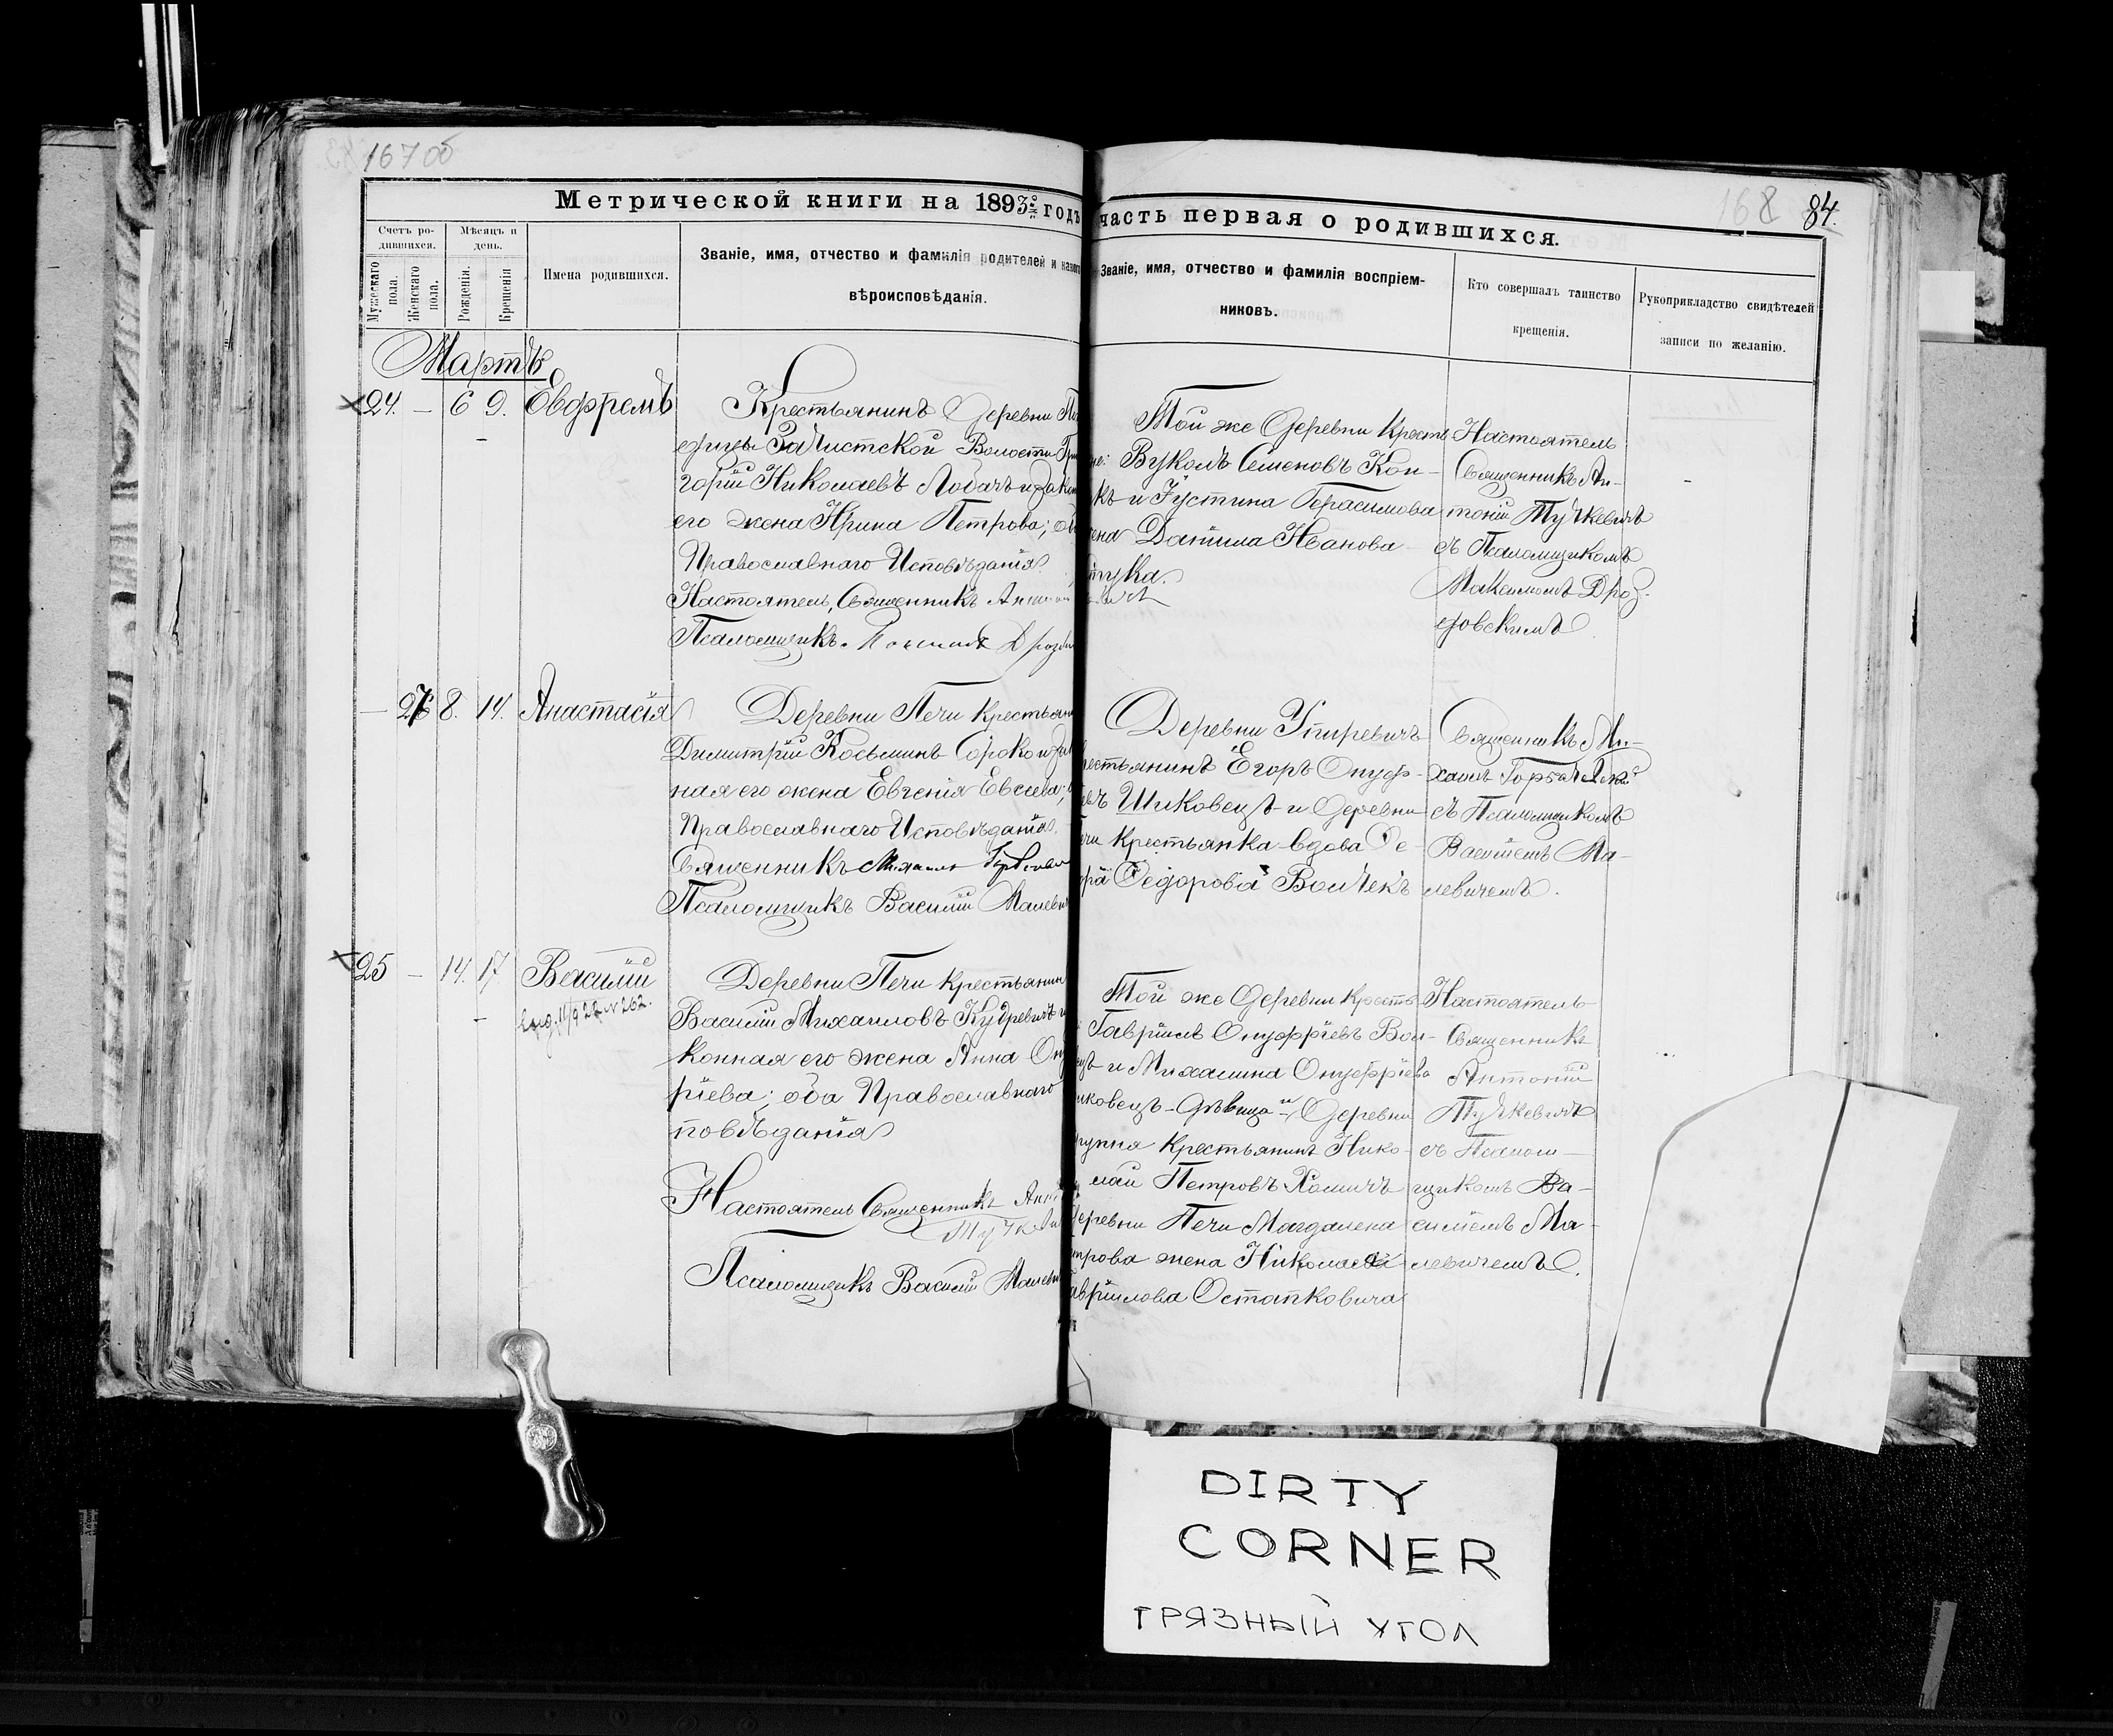 167 об
168 84.
Метрической книги на 1893 годъ
часть первая о родившихся.
Счетъ родившихся.
Мужескаго пола.
Женскаго пола.
Мѣсяцъ и день.
Рожденія.
Крещенія
Имена родившихся.
Званіе, имя, отчество и фамилія родителей и какого
вѣроисповѣданія.
Званіе, имя, отчество и фамилія воспріем-
никовъ.
Кто совершалъ таинство
крещенія.
Рукоприкладство свидѣтелей
записи по желанію.
Мартъ
24. — 6 9. Евфремъ
Крестьянинъ Деревни
Зачистской Волости Гри
горій Николаевъ Лобачъ и закон
его жена Ирина Петрова; об
Православнаго Исповѣданія.
Настоятель, Священникъ Антоній
Псаломщикъ Дрозд
Той же Деревни Кресть
не: Вуколъ Семеновъ Кон-
къ и Іустина Герасимова
жена Даніила Иванова
тука.
Настоятель
Священникъ Ан-
тоній Тучкевичъ
съ Псаломщикомъ
Максимомъ Дроз-
довскимъ
— 26 8. 14. Анастасія
Деревни Печи Крестьян
Димитрій Косьминъ Сороко и за
ная его жена Евгенія Евсеева;
Православнаго Исповѣданія.
Священникъ Михаилъ Горбачев
Псаломщикъ Василій Малеви
Деревни Упиревичъ
рестьянинъ Егоръ Онуф-
евъ Шиковецъ и Деревни
чи Крестьянка вдова Ѳе-
Ѳедорова Волчекъ
Священникъ Ми-
хаилъ Горбачевскій
съ Псаломщикомъ
Василіемъ Ма-
левичемъ.
25 — 14. 17 Василій
11/9 22 № 262.
Деревни Печи Крестьянин
Василій Михаиловъ Кудревичъ и
конная его жена Анна Ону
ріева; оба Православнаго
повѣданія
Настоятель Священникъ Анто
Тучкеви
Псаломщикъ Василій Малеви
Той же Деревни Кресть
Гавріилъ Онуфріевъ Вол-
цъ и Михалина Онуфріева
иковецъ-дѣвица и Деревни
Крестьянинъ Нико-
лай Петровъ Хомичъ
Деревни Печи Магдалена
трова жена Николая
авріилова Остапковича
Настоятель
Священникъ
Антоній
Тучкевичъ
съ Псалом-
щикомъ Ва-
силіемъ Ма-
левичемъ.
DIRTY
CORNER
ГРЯЗНЫЙ УГОЛ